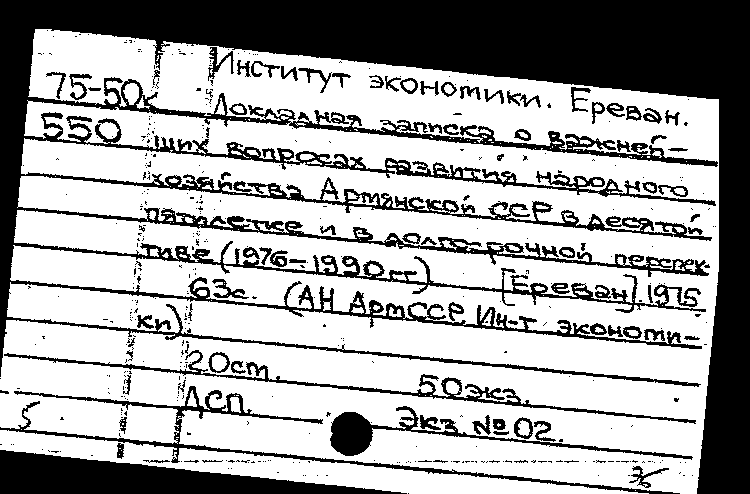 Институт экономики. Ереван.
75-50к
Докладная записка о важней-
550
ших вопросах развития народного
хозяйства Армянской ССР в десятой
пятилетке и в долгосрочной перспек-
тиве (1976-1990 гг) [Ереван]. 1975
63с. (АН АрмССР. Ин-т экономи-
ки)
20ст. 50экз.
ДСП. Экз. №02.
5